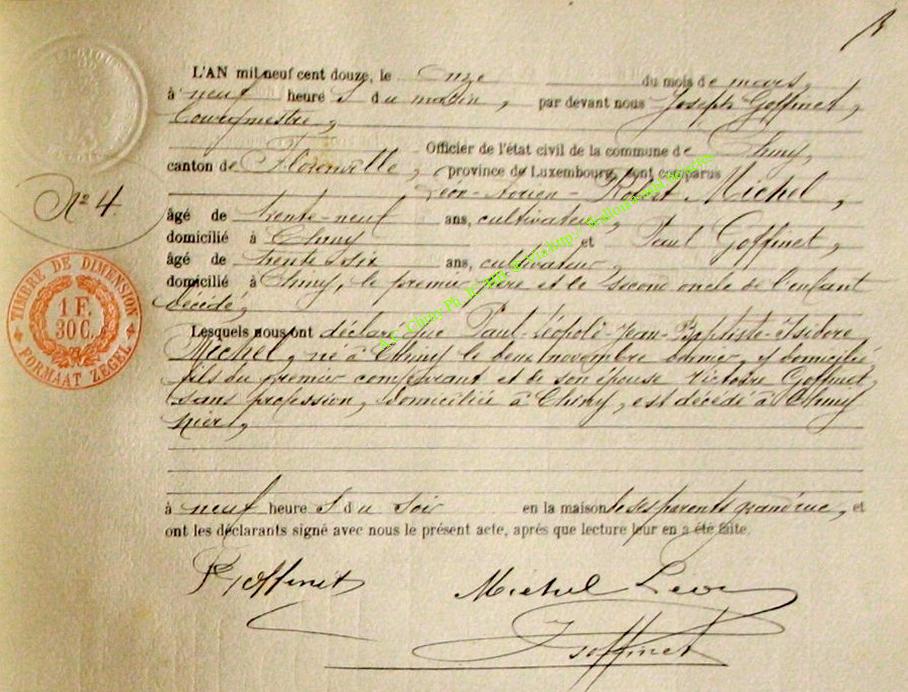 L'AN mil neuf cent douze, le Onze du mois de mars,
à neuf heures du matin, par devant nous Joseph Goffinet,
bourgmestre,
Officier de l'état civil de la commune de Chiny,
canton de Florenville, province de Luxembourg, sont comparus
Léon-Adrien-Robert Michel,
N° 4.
âgé de trente-neuf ans, cultivateur,
domicilié à Chiny et Paul Goffinet,
âgé de trente-six ans, cultivateur,
domicilié à Chiny, le premier père et le second oncle de l'enfant
décédé,
TIMBRE DE DIMENSION
1 F.
30 C.
FORMAAT ZEGEL
Lesquels nous ont déclaré que Paul-Léopold-Jean-Baptiste-Isidore
Michel, né à Chiny le deux novembre dernier, y domicilié
fils du premier comparant et de son épouse Victoire Goffinet,
sans profession, domiciliée à Chiny, est décédé à Chiny
hier,
à neuf heures du soir en la maison de ses parents grand'rue, et
ont les déclarants signé avec nous le présent acte, après que lecture leur en a été faite.
P Goffinet Michel Leon
J Goffinet